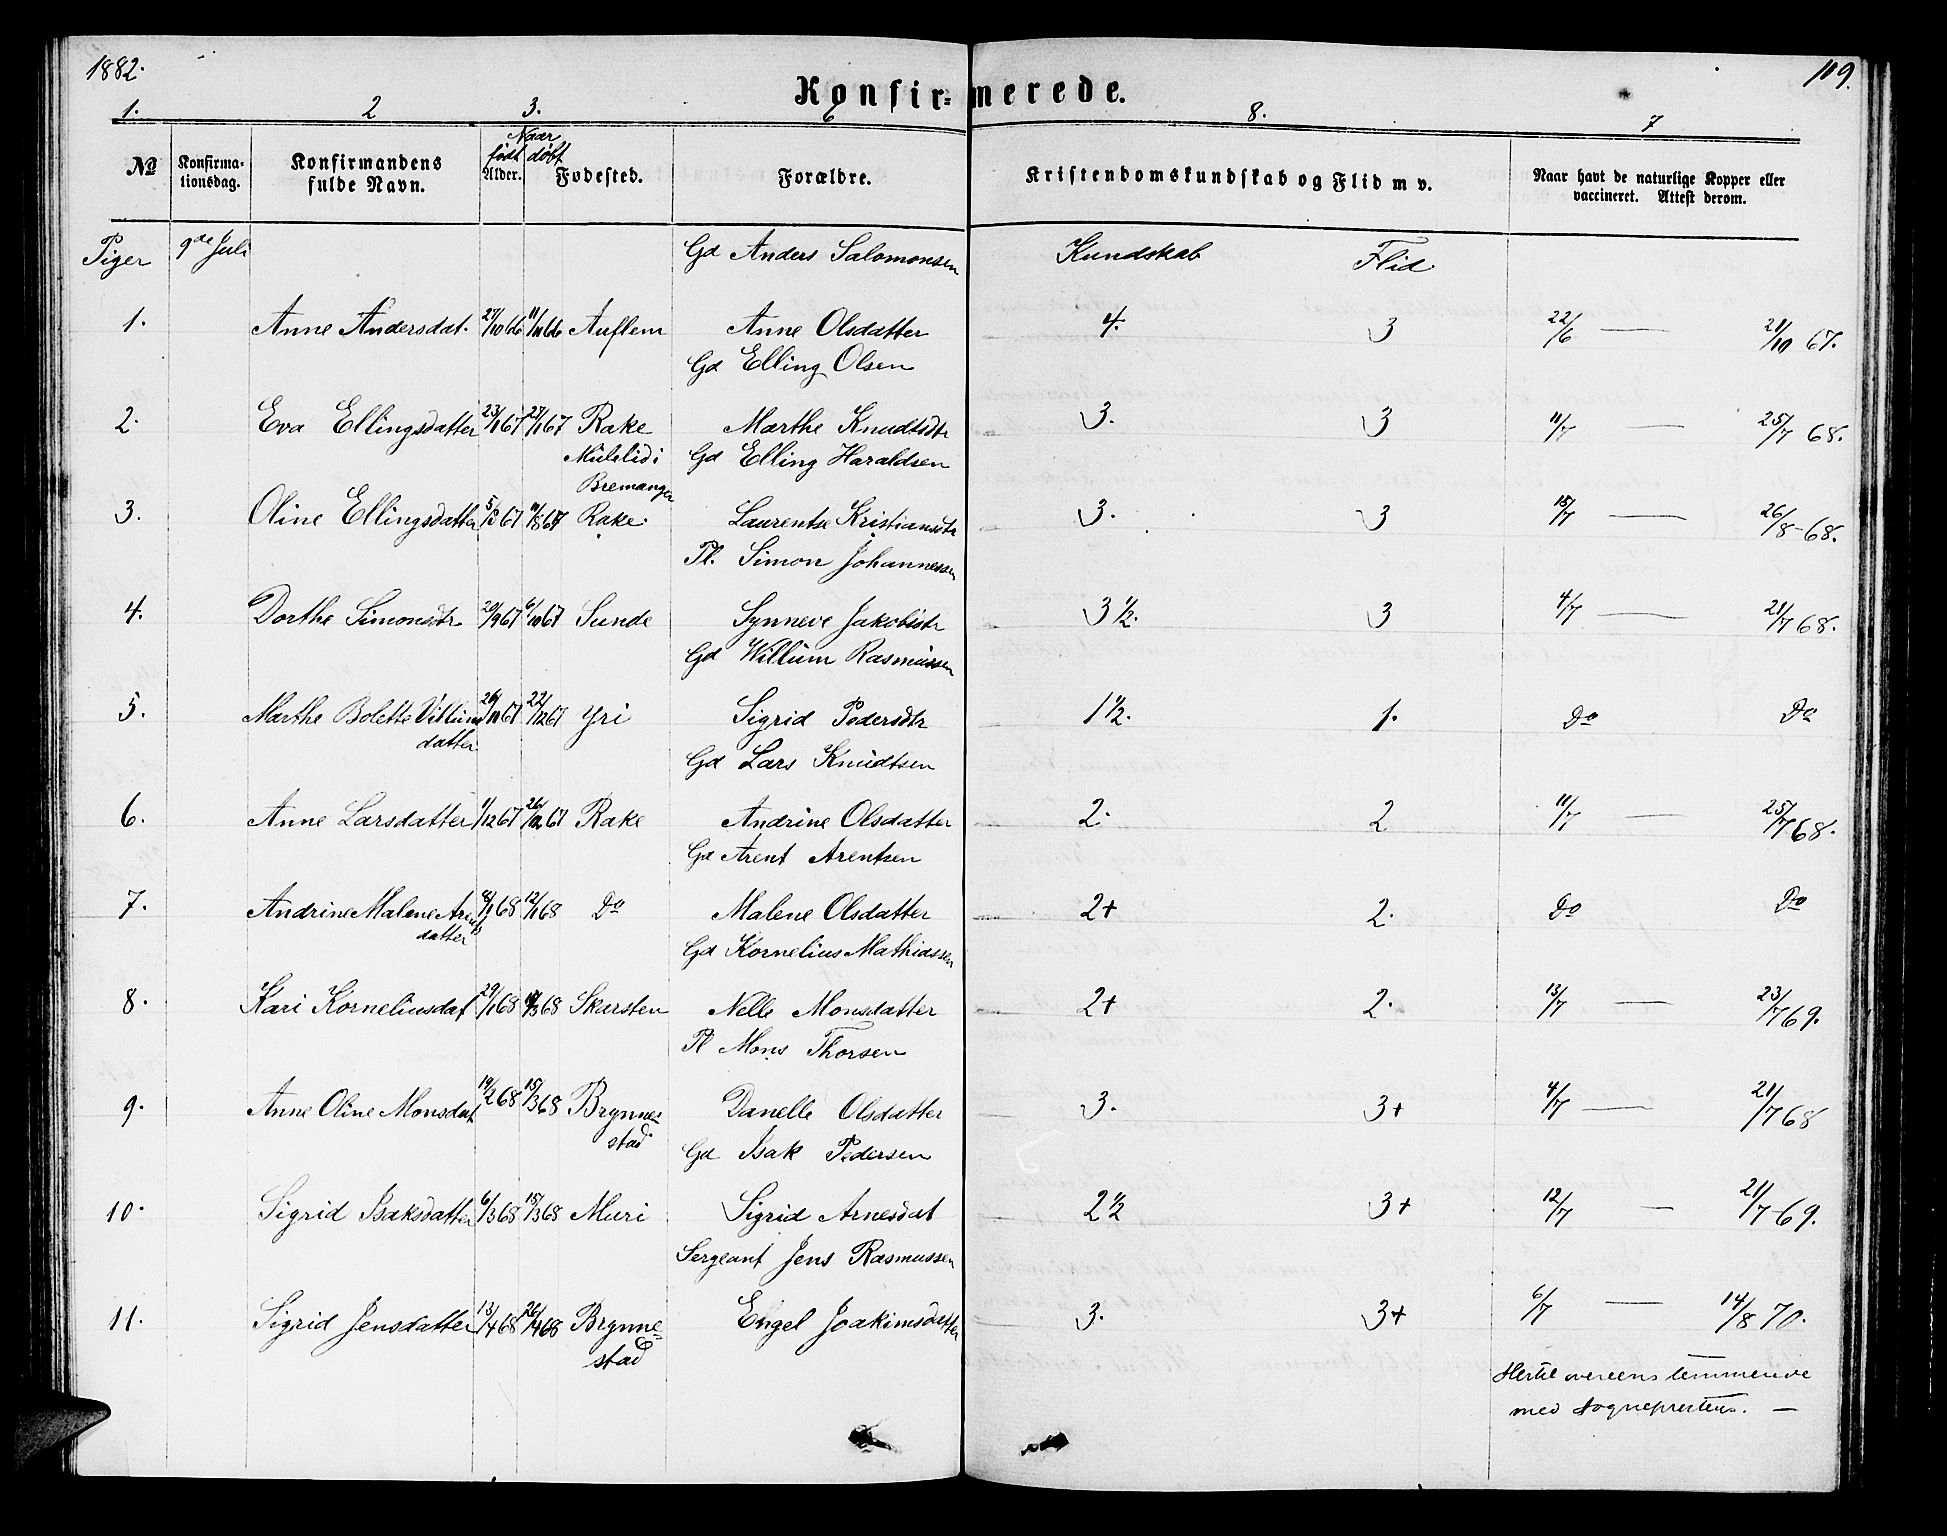 1882.
119.
Konfir=merede.
1. 2 3. 6 8. 7
Naar
født døbt
No Konfirma=tionsdag. Konfirmandens fulde Navn. Alder. Fødested. Forældre. Kristendomskundskab og Flid m v. Naar havt de naturlige Kopper eller vaccineret. Attest derom.
Piger 9de Juli Gd Anders Salomonsen Kundskab Flid
1. Anne Andersdat. 27/10 66 11/11 66 Auflem Anne Olsdatter 4. 3 22/6 — 21/10 67.
Gd Elling Olsen
2. Eva Ellingsdatter 23/1 67 27/1 67 Rake Marthe Knudtsdtr 3. 3 11/7 — 25/7 68.
Mulelid i Gd Elling Haraldsen
Bremanger
3. Oline Ellingsdatter 5/5 67 11/8 67 Rake. Laurentse Kristiansdtr 3. 3 15/7 — 26/8-68.
Pl. Simon Johannessen
4. Dorthe Simonsdtr 20/9 67 6/10 67 Sunde Synneve Jakobsdtr 3 1/2. 3 4/7 — 21/7 68.
Gd Willum Rasmussen
5. Marthe Bolette Villums 26/11 67 22/12 67 Yri Sigrid Pedersdtr 1 1/2. 1. Do Do
datter
Gd Lars Knudtsen
6. Anne Larsdatter 1/12 67 26/12 67 Rake Andrine Olsdatter 2. 2 11/7 — 25/7 68.
Gd Arent Arentsen
7. Andrine Malene Arents 8/1 68 12/1 68 Do Malene Olsdatter 2+ 2. Do Do
datter
Gd Kornelius Mathiassen
8. Kari Korneliusdat 29/1 68 /3 68 Skarsten Nelle Monsdatter 2+ 2. 13/7 — 23/7 69.
Pl Mons Thorsen
9. Anne Oline Monsdat 19/2 68 15/3 68 Brynne= Danelle Olsdatter 3. 3+ 4/7 — 21/7 68
stad.
Gd Isak Pedersen
10. Sigrid Isaksdatter 6/3 68 15/3 68 Muri Sigrid Arnesdat 2 1/2 3+ 12/7 — 21/7-69.
Sergeant Jens Rasmussen
11. Sigrid Jensdatter 13/4 68 26/4 68 Brynne= Engel Joakimsdatter 3. 3+ 6/7 — 14/8 70.
stad
Hertil overeensstemmende
med Sogneprestens. —